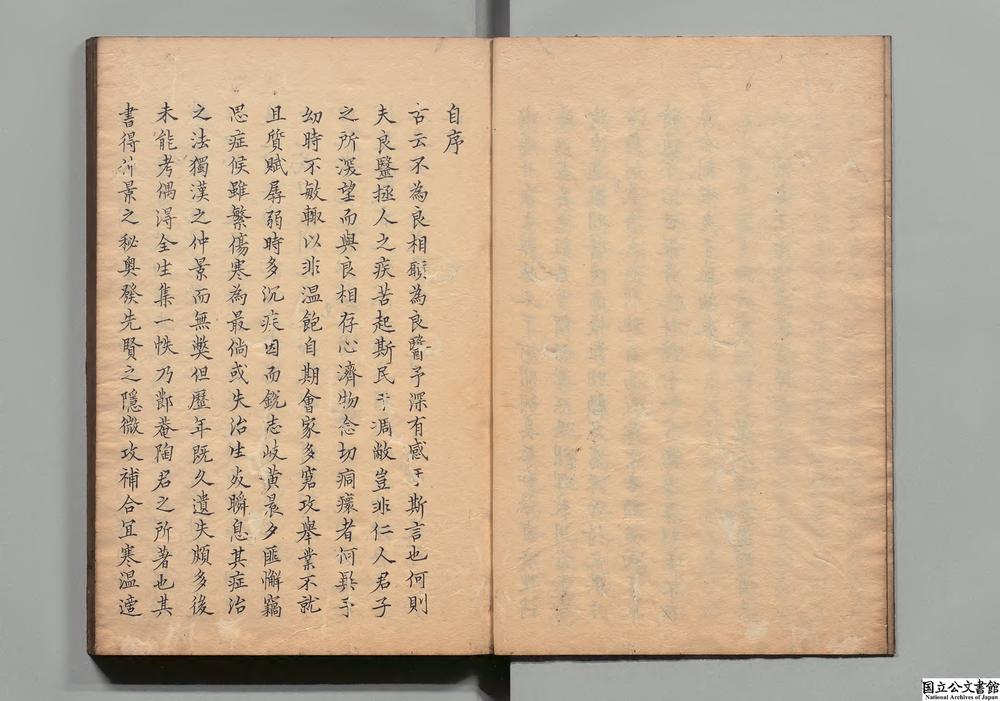 自序
古云不為良相願為良醫予深有感于斯言也何則
夫良醫拯人之疾苦起斯民于凋敝豈非仁人君子
之所深望而與良相存心濟物念切痌瘝者何異乎
幼時不敏輒以非溫飽自期會家多窘攻舉業不就
且質賦孱弱時多沉疾因而銳志岐黃晨夕匪懈竊
思症候雖繁傷寒為最倘或失治生死瞬息其症治
之法獨漢之仲景而無獘但歷年既久遺失頗多後
未能考偶得全生集一帙乃鄞菴陶君之所著也其
書得仲景之秘奧發先賢之隱微攻補合宜寒溫適
国立公文書館
National Archives of Japan